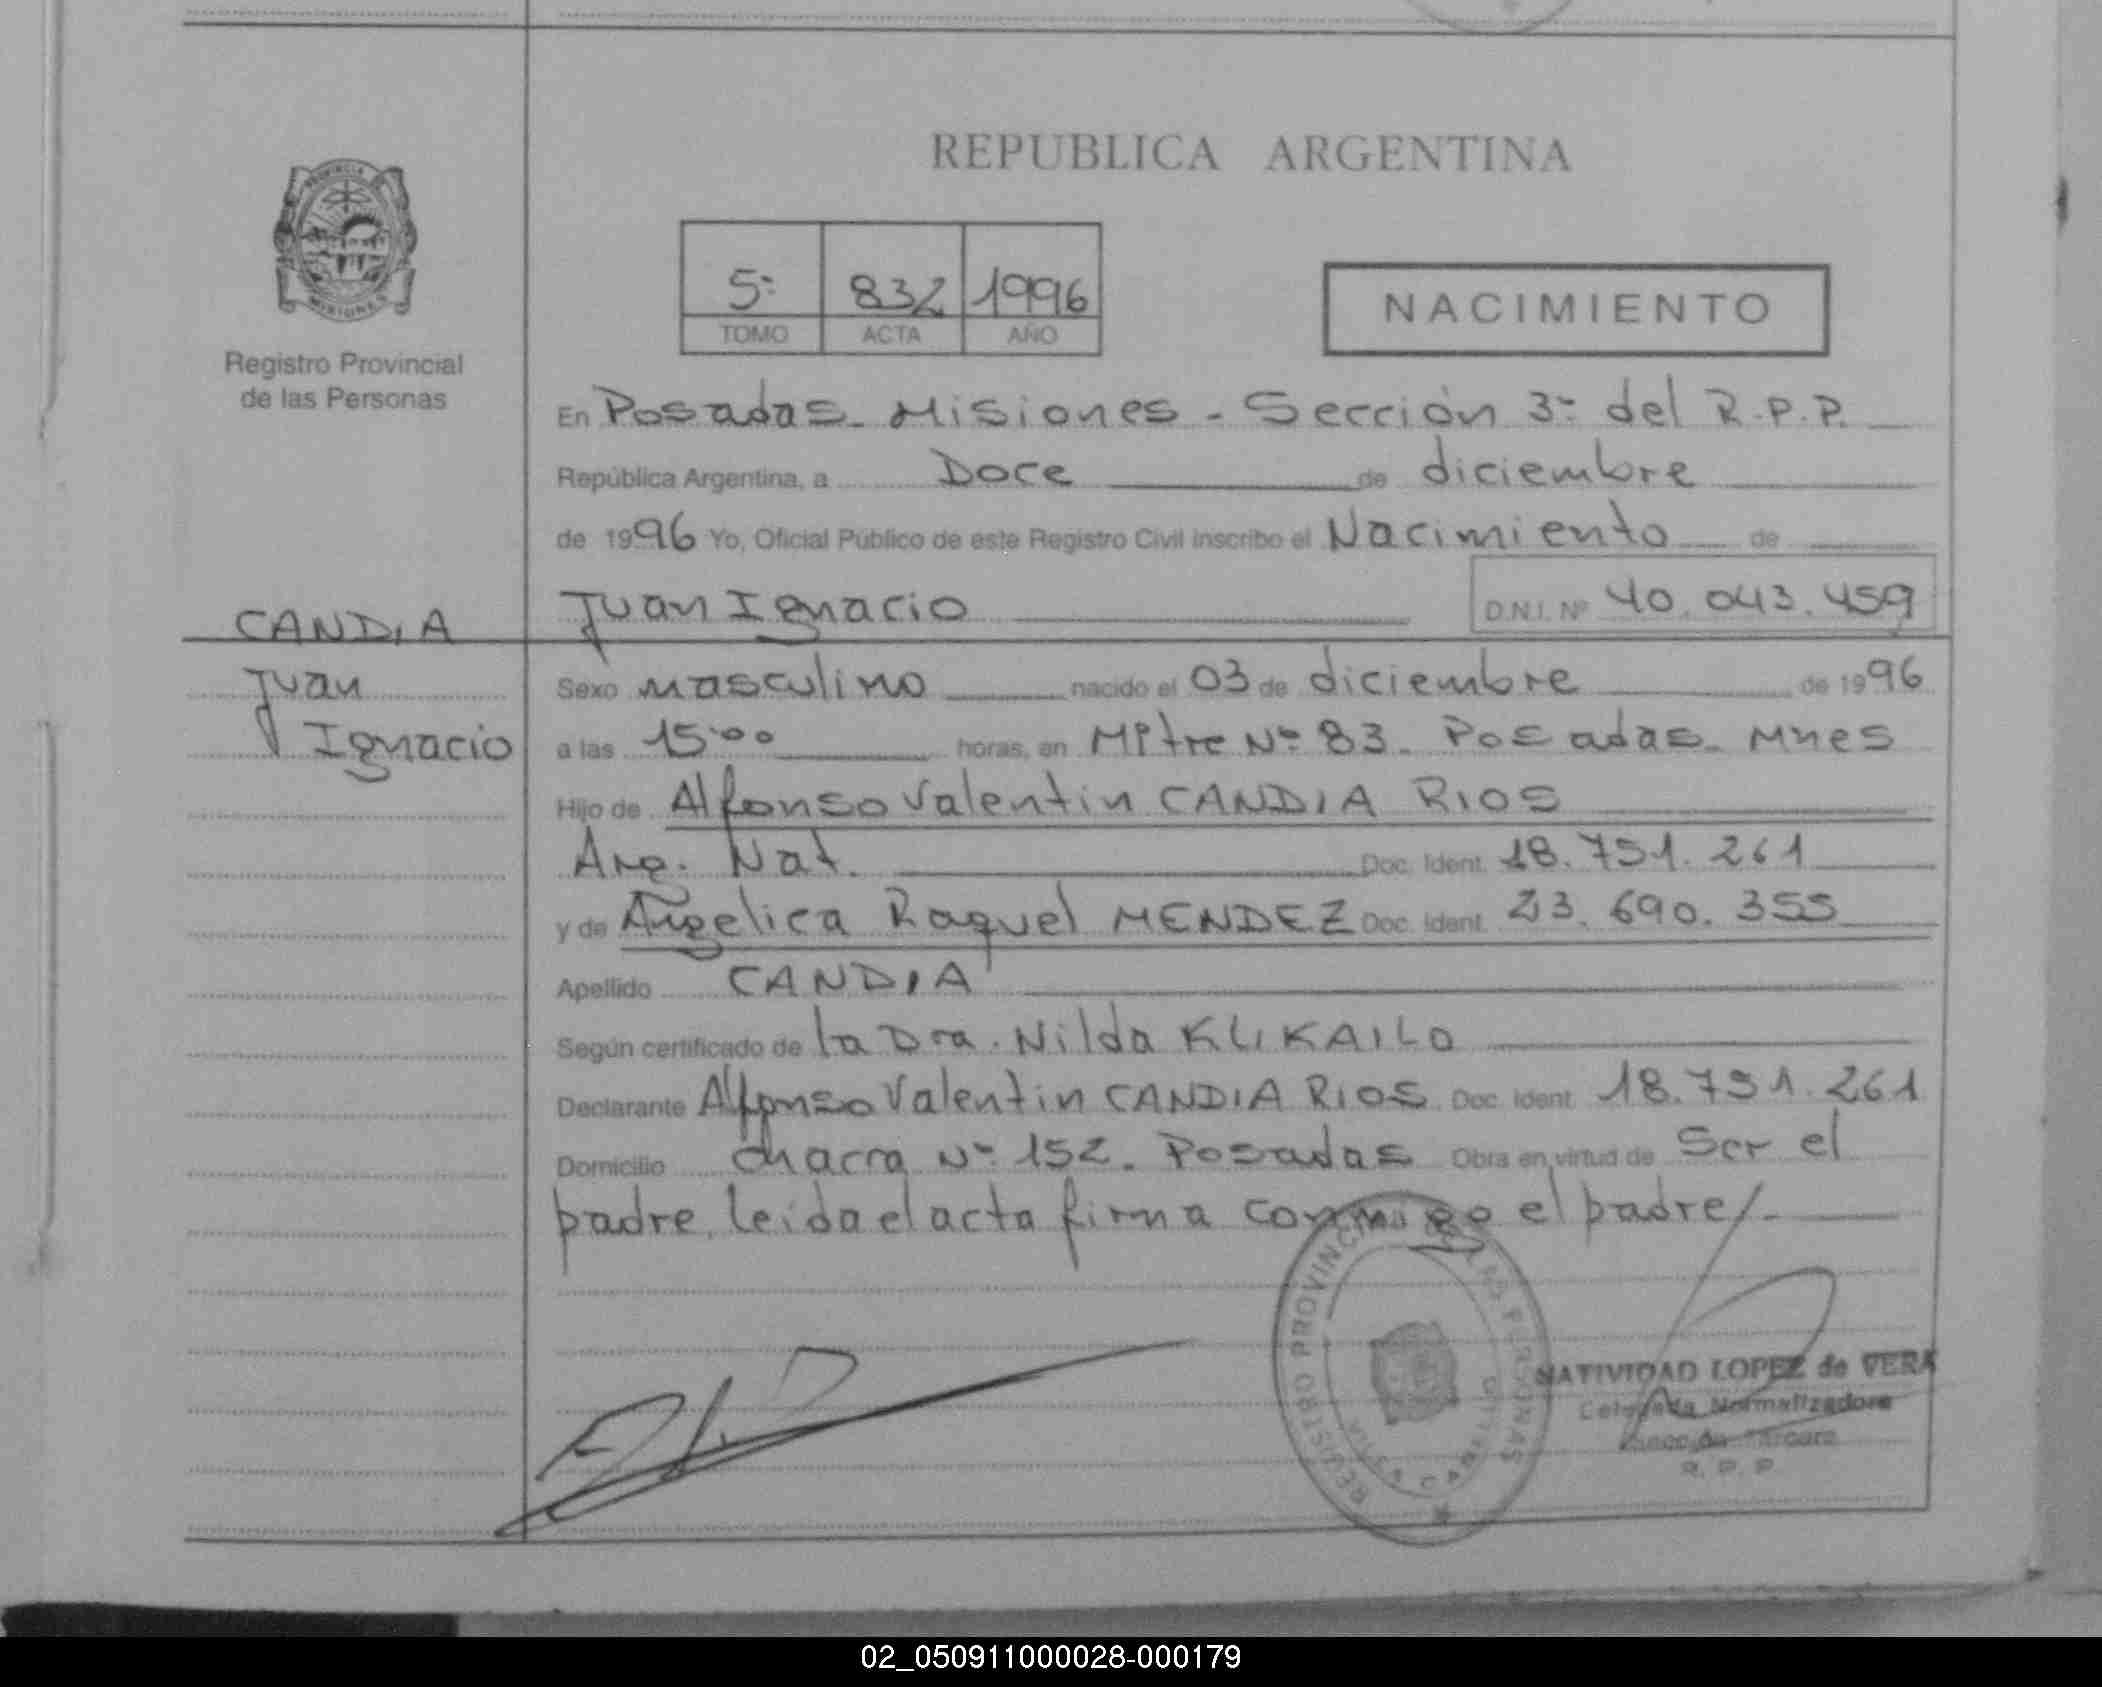 REPUBLICA ARGENTINA
PROVINCIA
MISIONES
Registro Provincial
de las Personas
5º 832 1996
TOMO ACTA AÑO
NACIMIENTO
En Posadas - Misiones - Sección 3º del R.P.P.
República Argentina, a Doce de diciembre
de 1996 Yo, Oficial Público de este Registro Civil inscribo el Nacimiento de
CANDIA
Juan
Ignacio
Juan Ignacio D.N.I. Nº 40.043.459
Sexo masculino nacido el 03 de diciembre de 1996
a las 15:00 horas, en Mitre Nº 83. Posadas - Mnes
Hijo de Alfonso Valentin CANDIA RIOS
Arg. Nat. Doc. Ident. 18.751.261
y de Angelica Raquel MENDEZ Doc. Ident. 23.690.355
Apellido CANDIA
Según certificado de la Dra. Nilda KLIKAILO
Declarante Alfonso Valentin CANDIA RIOS Doc. Ident. 18.751.261
Domicilio chacra Nº 152. Posadas Obra en virtud de Ser el
padre, leida el acta firma conmigo el padre/.-
REGISTRO PROVINCIAL DE LAS PERSONAS
NATIVIDAD LOPEZ de VERA
Delegada Normalizadora
Sección Tercera
R. P. P.
02_050911000028-000179